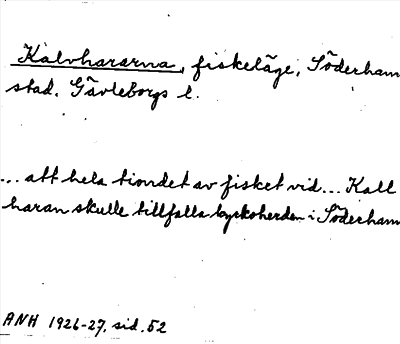 Kalvhararna, fiskeläge, Söderham
stad. Gävleborgs l.
... att hela tiondet av fisket vid... Kall
haran skulle tillfalla kyrkoherden i Söderham
ANH 1926-27, sid. 52